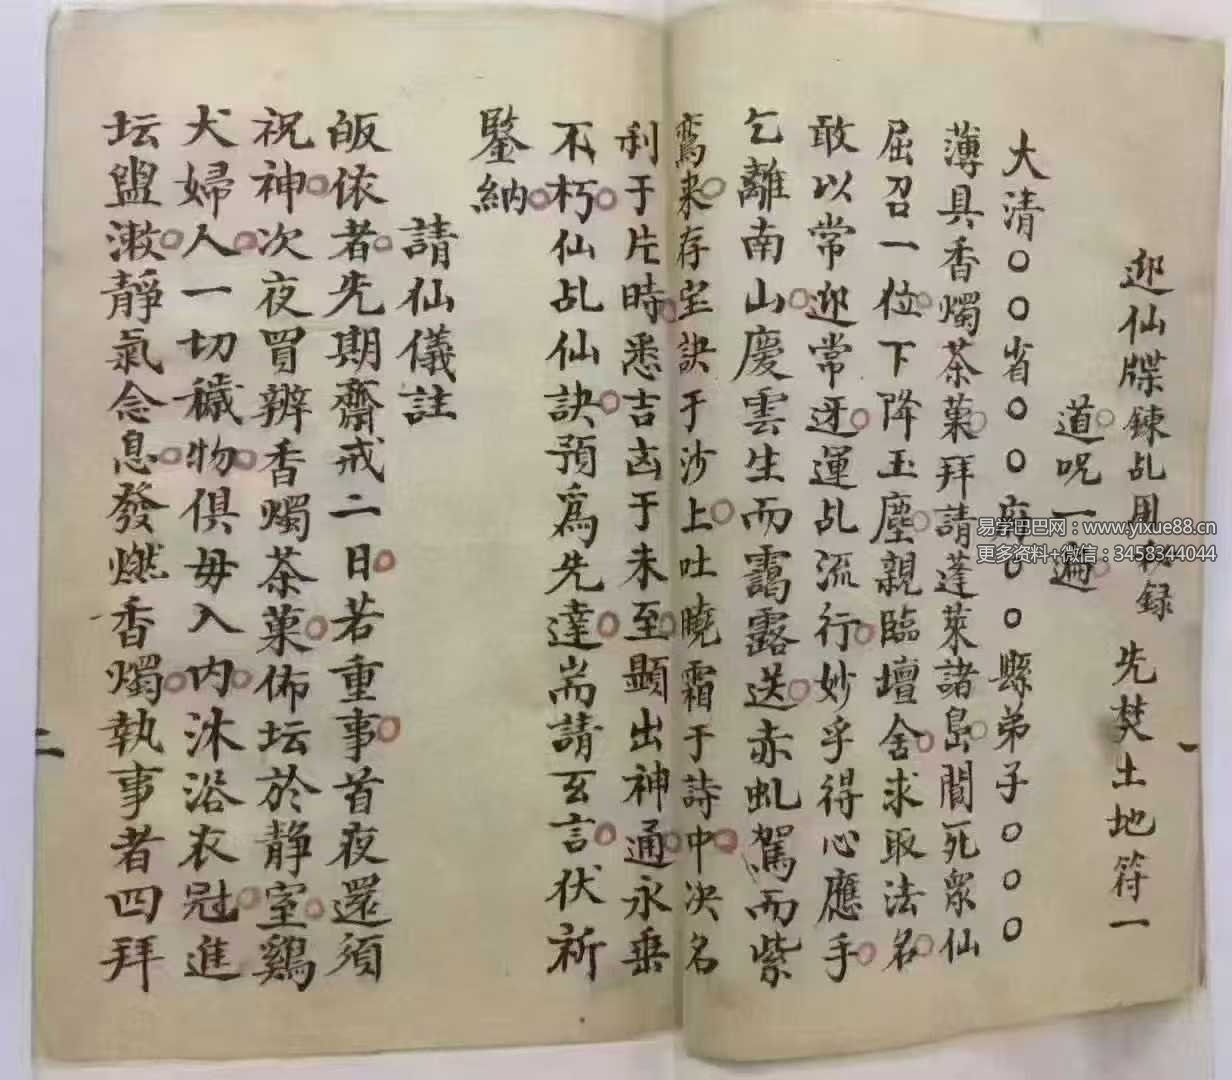 迎仙牒錬乩周秘録 先焚土地符一
道呪一遍
大清〇〇省〇〇府〇〇縣弟子〇〇〇
薄具香燭茶菓拜請蓬萊諸島閬死衆仙
屈召一位下降玉塵親臨壇舍求取法名
敢以常迎常迓運乩流行妙乎得心應手
乞離南山慶雲生而靄露送赤虬駕而紫
鸞来存宝訣于沙上吐曉霜于詩中决名
利于片時悉吉凶于未至顯出神通永垂
不朽仙乩仙訣預爲先達耑請玄言伏祈
鑒納
請仙儀註
皈依者先期齋戒二日若重事首夜還須
祝神次夜買辨香燭茶菓佈坛於静室鷄
犬婦人一切穢物俱毋入内沐浴衣冠進
坛盥漱靜氣念息發燃香燭執事者四拜
二
一
易学巴巴网：www.yixue88.cn
更多资料+微信：3458344044